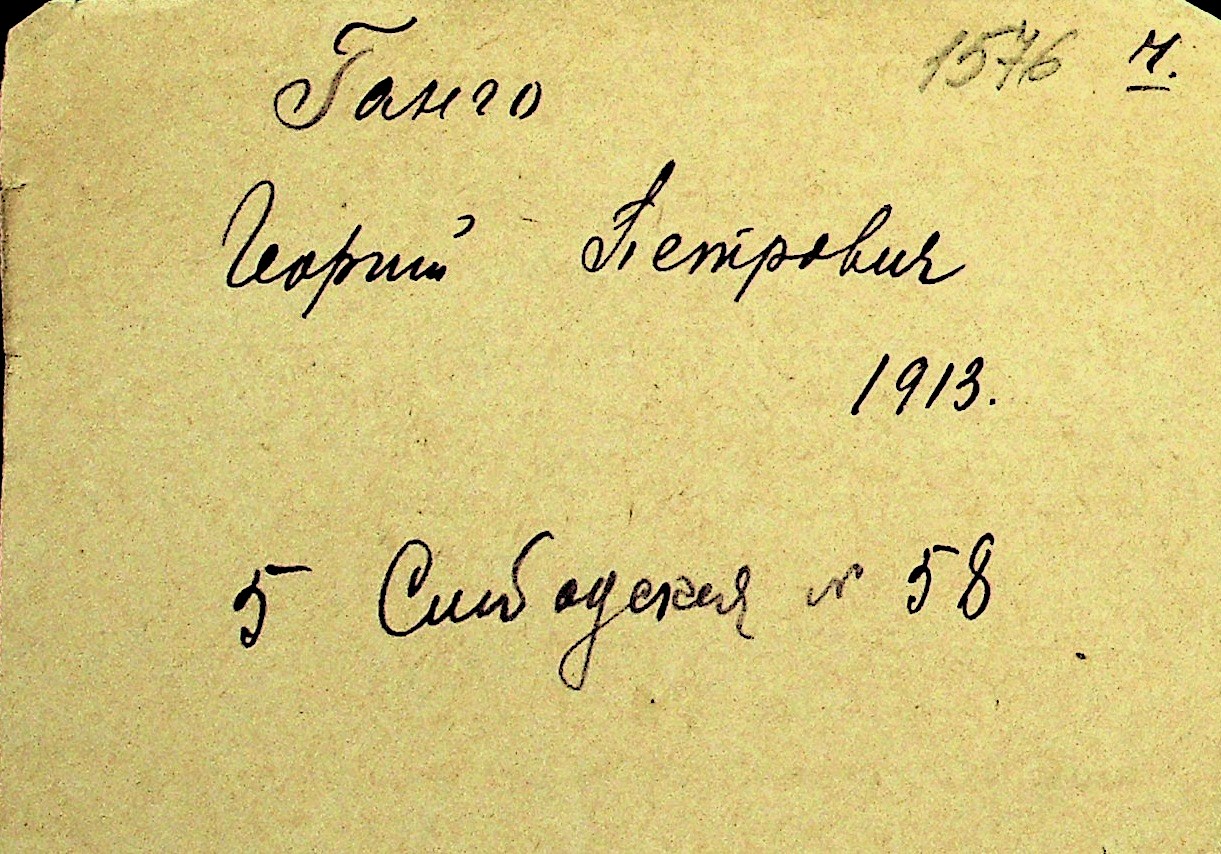 1576 Ч.
Ганго
Георгий Петрович
1913.
5 Слободская № 58